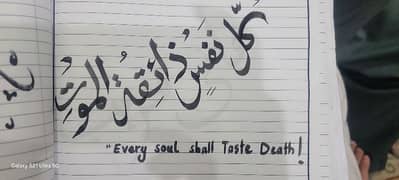 كُلُّ نَفْسٍ ذَائِقَةُ الْمَوْتِ
"Every soul shall Taste Death!
Galaxy A21 Ultra 5G